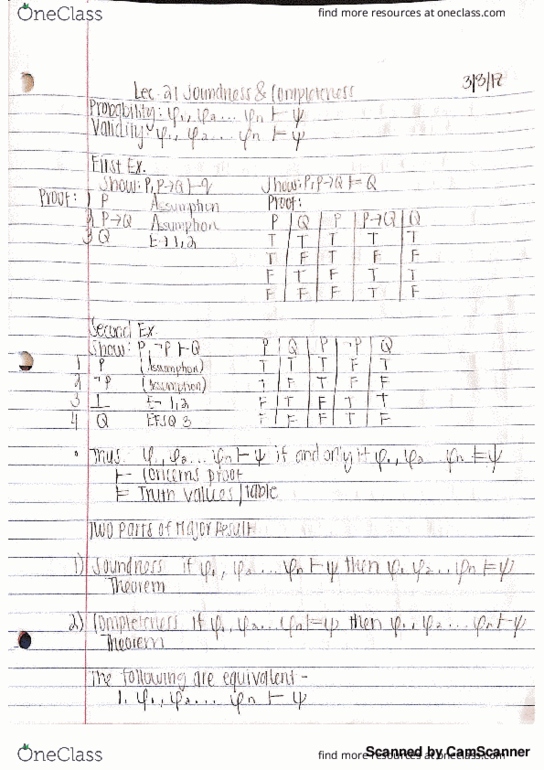 OneClass
find more resources at oneclass.com
3/8/17
Lec 21 Soundness & Completeness
Provability: φ₁, φ₂... φn ⊢ ψ
Validity: φ₁, φ₂... φn ⊢ ψ
First Ex.
Show: P, P→Q ⊢ Q Show: P, P→Q ⊨ Q
Proof: 1 P Assumption Proof:
2 P→Q Assumption P Q P P→Q Q
3 Q E→ 1,2 T T T T T
T F T F F
F T F T T
F F F T F
Second Ex.
Show: P, ¬P ⊢ Q P Q P ¬P Q
1 P (Assumption) T T T F T
2 ¬P (Assumption) T F T F F
3 ⊥ E¬ 1,2 F T F T T
4 Q EFSQ 3 F F F T F
Thus φ₁, φ₂... φn ⊢ ψ if and only if φ₁, φ₂ ... φn ⊨ ψ
⊢ concerns proof
⊨ Truth values/table
Two Parts of Major Result
1) Soundness if φ₁, φ₂... φn ⊢ ψ then φ₁, φ₂... φn ⊨ ψ
Theorem
2) Completeness if φ₁, φ₂... φn ⊨ ψ then φ₁, φ₂... φn ⊢ ψ
Theorem
The following are equivalent -
1. φ₁, φ₂... φn ⊢ ψ
OneClass
find more resources at oneclass.com
Scanned by CamScanner